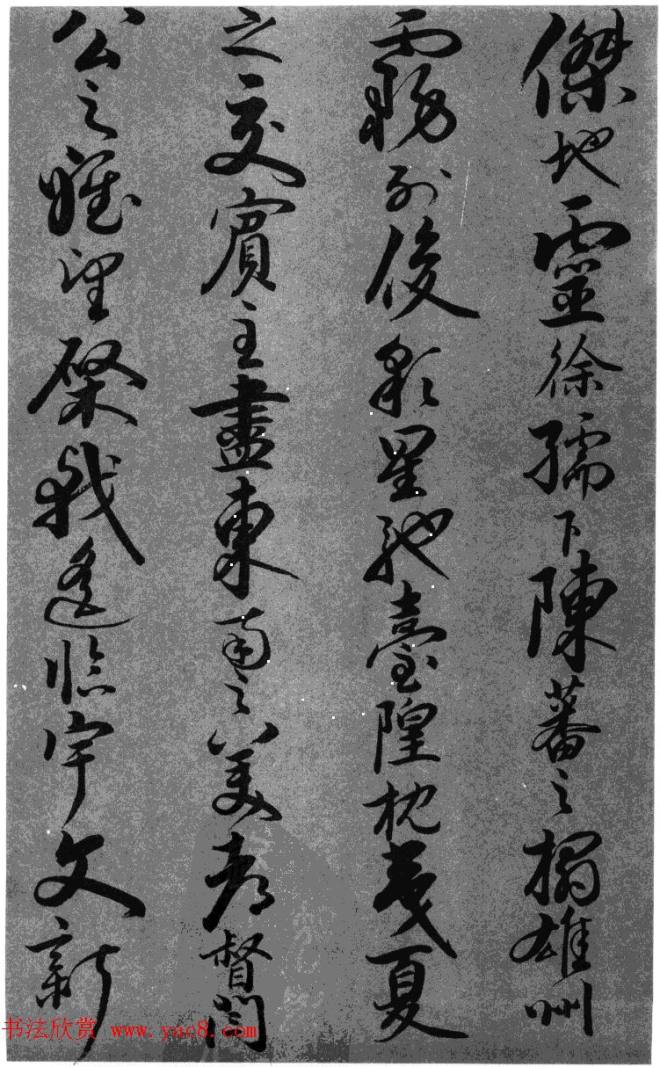 傑地靈徐孺下陳蕃之榻雄州
霧列俊彩星馳臺隍枕夷夏
之交賓主盡東南之美都督閻
公之雅望棨戟遥臨宇文新
书法欣赏 www.yac8.com